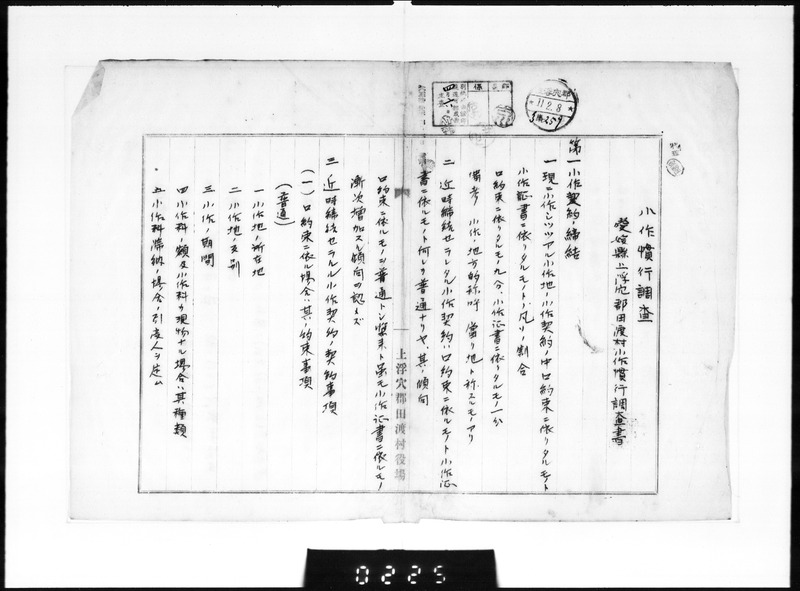 小作慣行調査
愛媛縣上浮穴郡田渡村小作慣行調査書
第一 小作契約ノ締結
一 現ニ小作シツツアル小作地ノ小作契約ノ中口約束ニ依リタルモノト
小作証書ニ依リタルモノトノ凡ソノ割合
口約束ニ依リタルモノ九分、小作証書ニ依リタルモノ一分
備考 小作ノ地方的称呼 當リ地ト称スルモノアリ
二 近時締結セラレタル小作契約ハ口約束ニ依ルモノト小作証
書ニ依ルモノト何レカ普通ナリヤ、其ノ傾向
口約束ニ依ルモノヲ普通トシ 小作証書ニ依ルモノ
漸次増加スル傾向ヲ認メズ
三 近時締結セラルル小作契約ノ契約事項
(一) 口約束ニ依ル場合ハ其ノ約束事項
(普通)
一 小作地ノ所在地
二 小作地ノ
三 小作ノ期間
四 小作料ノ額及小作料カ現物ナル場合ハ其種類
五 小作料滞納ノ場合ノ引受人ヲ定ム
上浮穴郡田渡村役場
11.2.8
0225